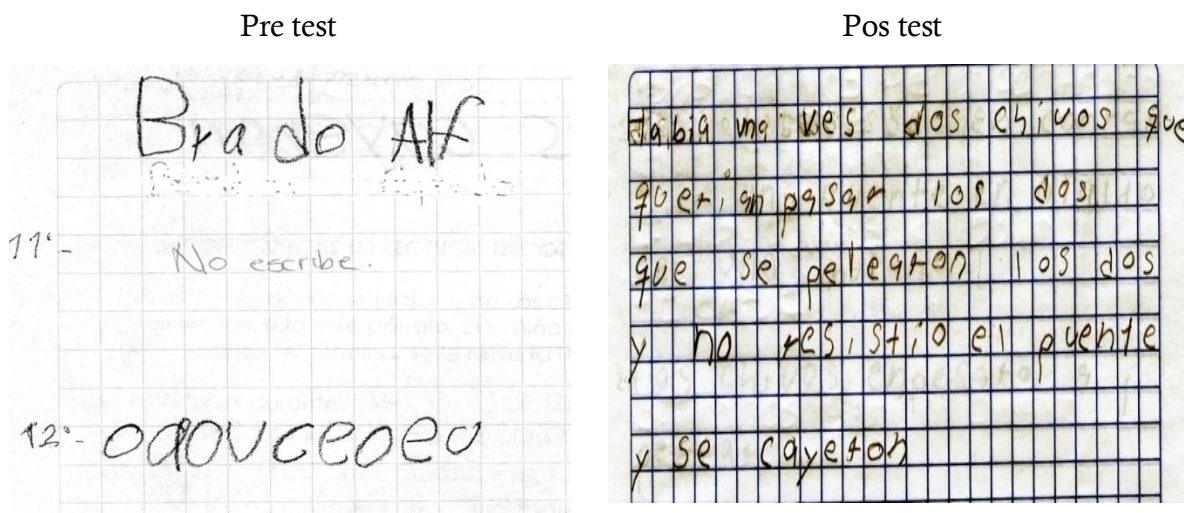 Pre test
Pos test
Brado Alf
11.-
No escribe.
12.- odovceoeo
Había una ves dos chivos que
querian pasar los dos
que se pelearon los dos
y no resistio el puente
y se cayeron